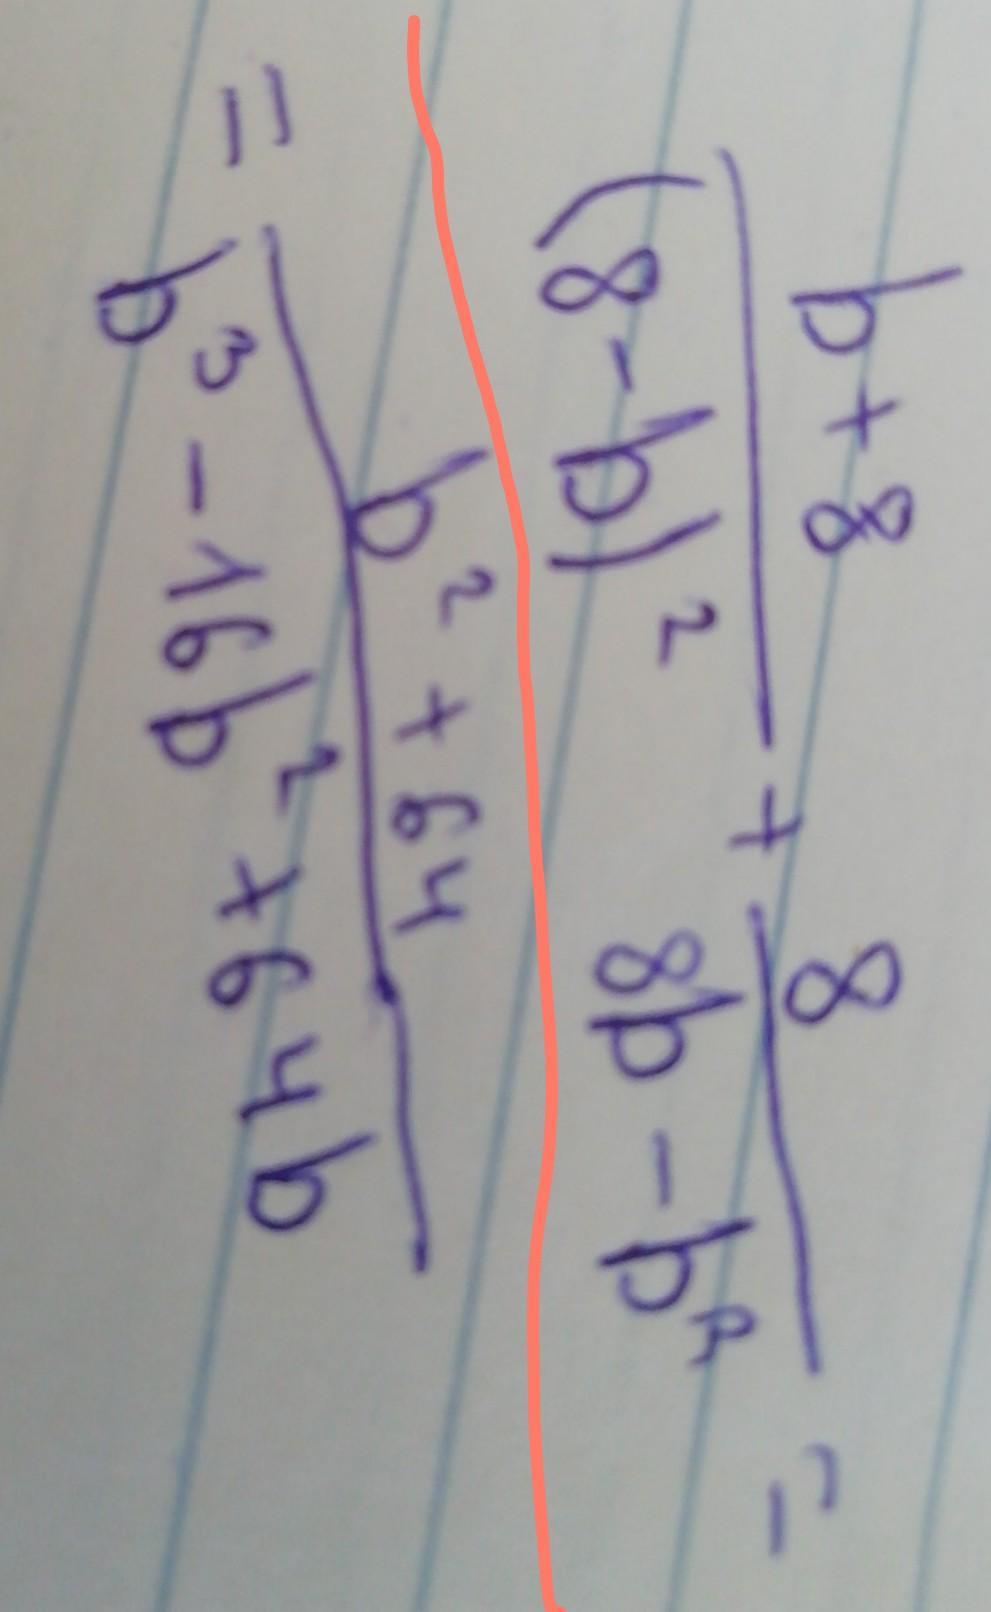 b + 8 / (8 - b)² + 8 / 8b - b² =
= b² + 64 / b³ - 16b² + 64b